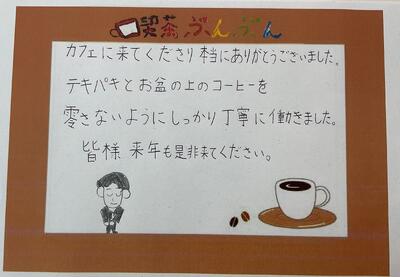 喫茶ぶんぶん
カフェに来てくださり本当にありがとうございました。
テキパキとお盆の上のコーヒーを
零さないようにしっかり丁寧に働きました。
皆様 来年も是非来てください。